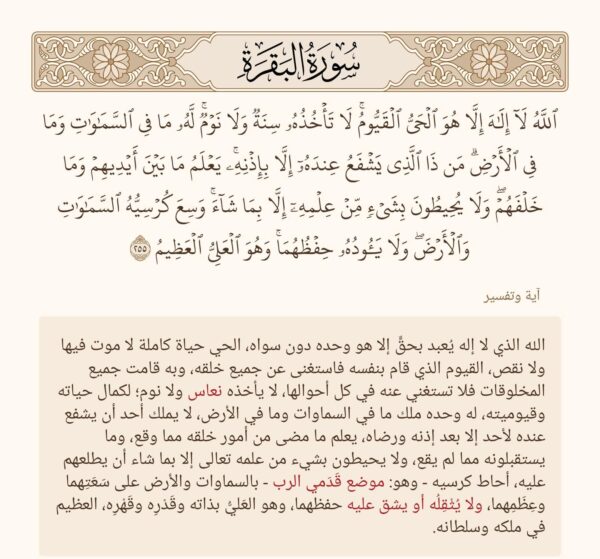 سُورَةُ الْبَقَرَةِ
ٱللَّهُ لَآ إِلَٰهَ إِلَّا هُوَ ٱلْحَىُّ ٱلْقَيُّومُ ۚ لَا تَأْخُذُهُۥ سِنَةٌ وَلَا نَوْمٌ ۚ لَّهُۥ مَا فِى ٱلسَّمَٰوَٰتِ وَمَا
فِى ٱلْأَرْضِ ۗ مَن ذَا ٱلَّذِى يَشْفَعُ عِندَهُۥٓ إِلَّا بِإِذْنِهِۦ ۚ يَعْلَمُ مَا بَيْنَ أَيْدِيهِمْ وَمَا
خَلْفَهُمْ ۖ وَلَا يُحِيطُونَ بِشَىْءٍ مِّنْ عِلْمِهِۦٓ إِلَّا بِمَا شَآءَ ۚ وَسِعَ كُرْسِيُّهُ ٱلسَّمَٰوَٰتِ
وَٱلْأَرْضَ ۖ وَلَا يَـُٔودُهُۥ حِفْظُهُمَا ۚ وَهُوَ ٱلْعَلِىُّ ٱلْعَظِيمُ ٢٥٥
آية وتفسير
الله الذي لا إله يُعبد بحقٍّ إلا هو وحده دون سواه، الحي حياة كاملة لا موت فيها
ولا نقص، القيوم الذي قام بنفسه فاستغنى عن جميع خلقه، وبه قامت جميع
المخلوقات فلا تستغني عنه في كل أحوالها، لا يأخذه نعاس ولا نوم؛ لكمال حياته
وقيوميته، له وحده ملك ما في السماوات وما في الأرض، لا يملك أحد أن يشفع
عنده لأحد إلا بعد إذنه ورضاه، يعلم ما مضى من أمور خلقه مما وقع، وما
يستقبلونه مما لم يقع، ولا يحيطون بشيء من علمه تعالى إلا بما شاء أن يطلعهم
عليه، أحاط كرسيه - وهو: موضع قَدَمي الرب - بالسماوات والأرض على سَعَتِهما
وعِظَمِهما، ولا يُثْقِلُه أو يشق عليه حفظهما، وهو العَليُّ بذاته وقَدَرِه وقَهْرِه، العظيم
في ملكه وسلطانه.